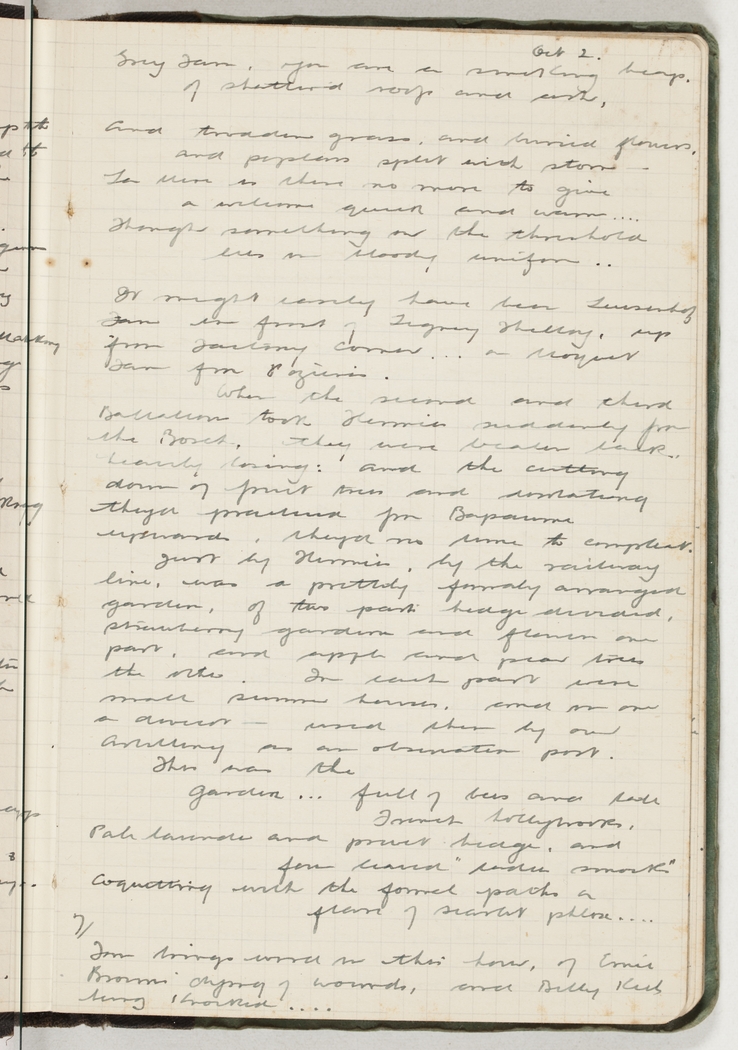 Oct 2.
Grey Farm, you are a smoking heap,
of shattered roofs and ash,
And trodden grass, and buried flowers,
and poplars split with storm —
For there is there no more to give
a welcome quick and warm....
Though something on the threshold
lies in bloody uniform ..
It might easily have been
Farm in front of Ligny Thilloy, up
from Factory Corner.... or Mouquet
Farm from Pozieres.
When the second and third
Battalion took Hermies suddenly from
the Bosch, they were beaten back,
heavily losing: and the cutting
down of fruit trees and desolating
theyd practised from Bapaume
upwards, theyd no time to compleat.
Just by Hermies, by the railway
line, was a prettily formaly arranged
garden, of two parts hedge divided,
strawberry garden and flowers one
part, and apple and pear trees
the other. In each part were
small summer houses, and in one
a divisor — used then by our
Artillery as an observation post.
This was the
Garden... full of bees and tall
French hollyhocks,
Pale lavender and privet hedge, and
four leaved "ladies smocks"
Coquetting with the formal paths a
flare of scarlet phlox....
7/
Tom brings word in this hour, of Ernie
Browns dying of wounds, and Billy
being knocked ....